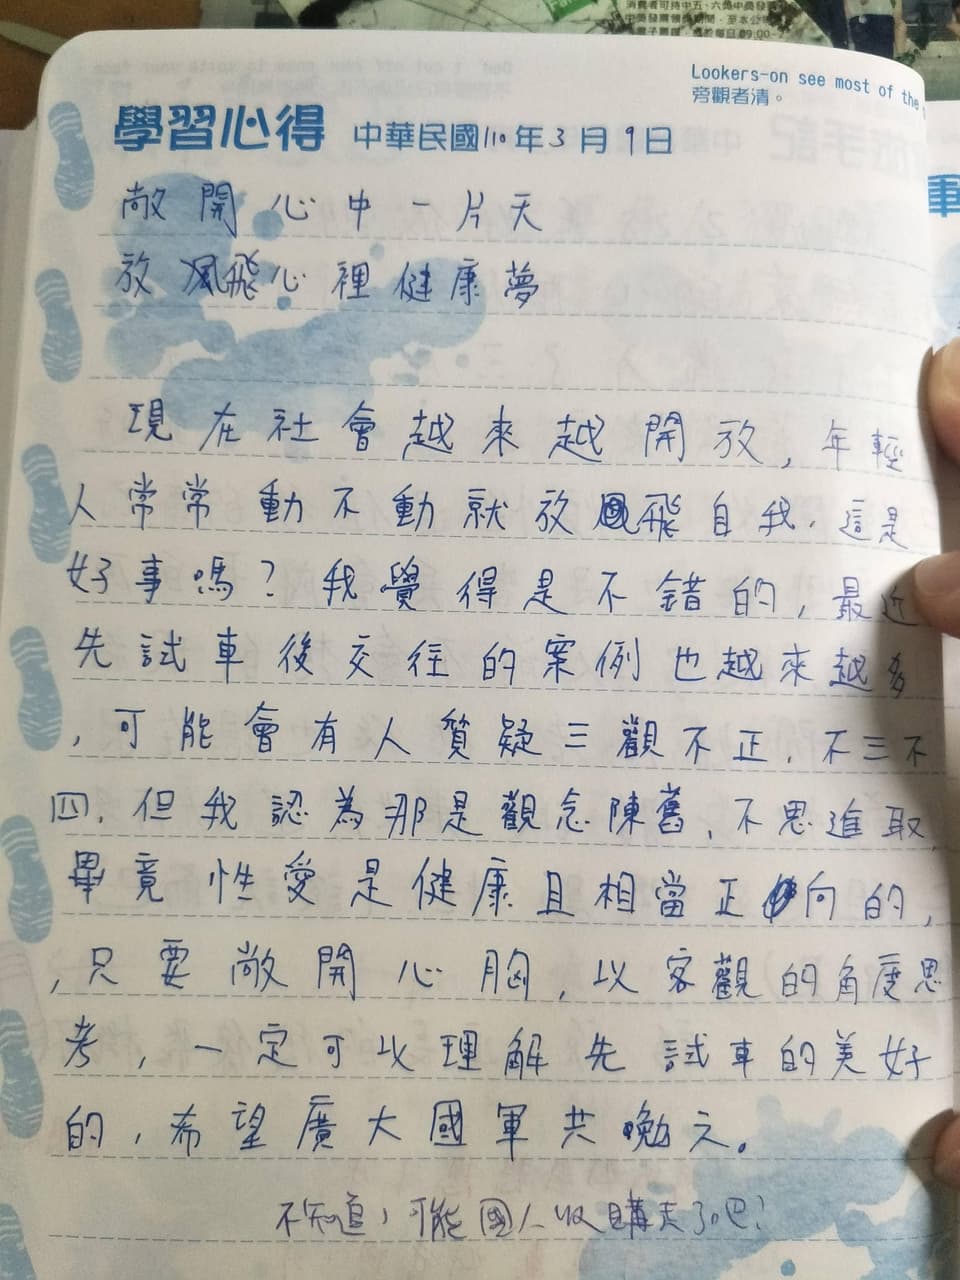 消費者可持中五、六獎中獎發票
Lookers-on see most of the
旁觀者清。
學習心得 中華民國110年3月9日
敞開心中一片天
放飛心裡健康夢
現在社會越來越開放,年輕
人常常動不動就放飛自我,這是
好事嗎?我覺得是不錯的,最近
先試車後交往的案例也越來越多
,可能會有人質疑三觀不正,不三不
四,但我認為那是觀念陳舊,不思進取,
畢竟性愛是健康且相當正向的,
,只要敞開心胸,以客觀的角度思
考,一定可以理解先試車的美好
的,希望廣大國軍共勉之。
不知道,可能國人收購走了吧?